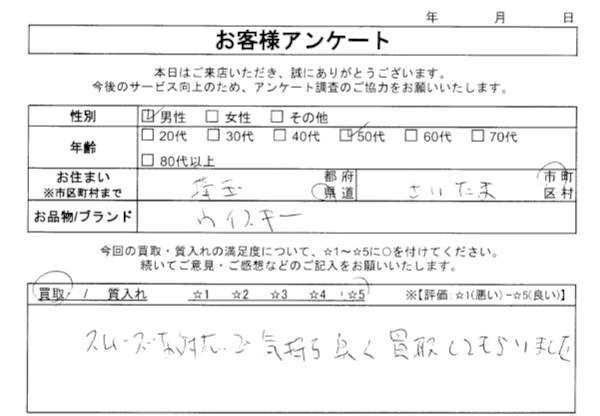 年 月 日
お客様アンケート
本日はご来店いただき、誠にありがとうございます。
今後のサービス向上のため、アンケート調査のご協力をお願いいたします。
性別 ☑男性 □女性 □その他
年齢 □20代 □30代 □40代 ☑50代 □60代 □70代
□80代以上
お住まい 埼玉 都府 さいたま 市町
※市区町村まで 県道 区村
お品物/ブランド ウイスキー
今回の買取・質入れの満足度について、☆1～☆5に○を付けてください。
続いてご意見・ご感想などのご記入をお願いいたします。
買取 / 質入れ ☆1 ☆2 ☆3 ☆4 ☆5 ※【評価:☆1(悪い)-☆5(良い)】
スムーズな対応で気持ち良く買取してもらいました